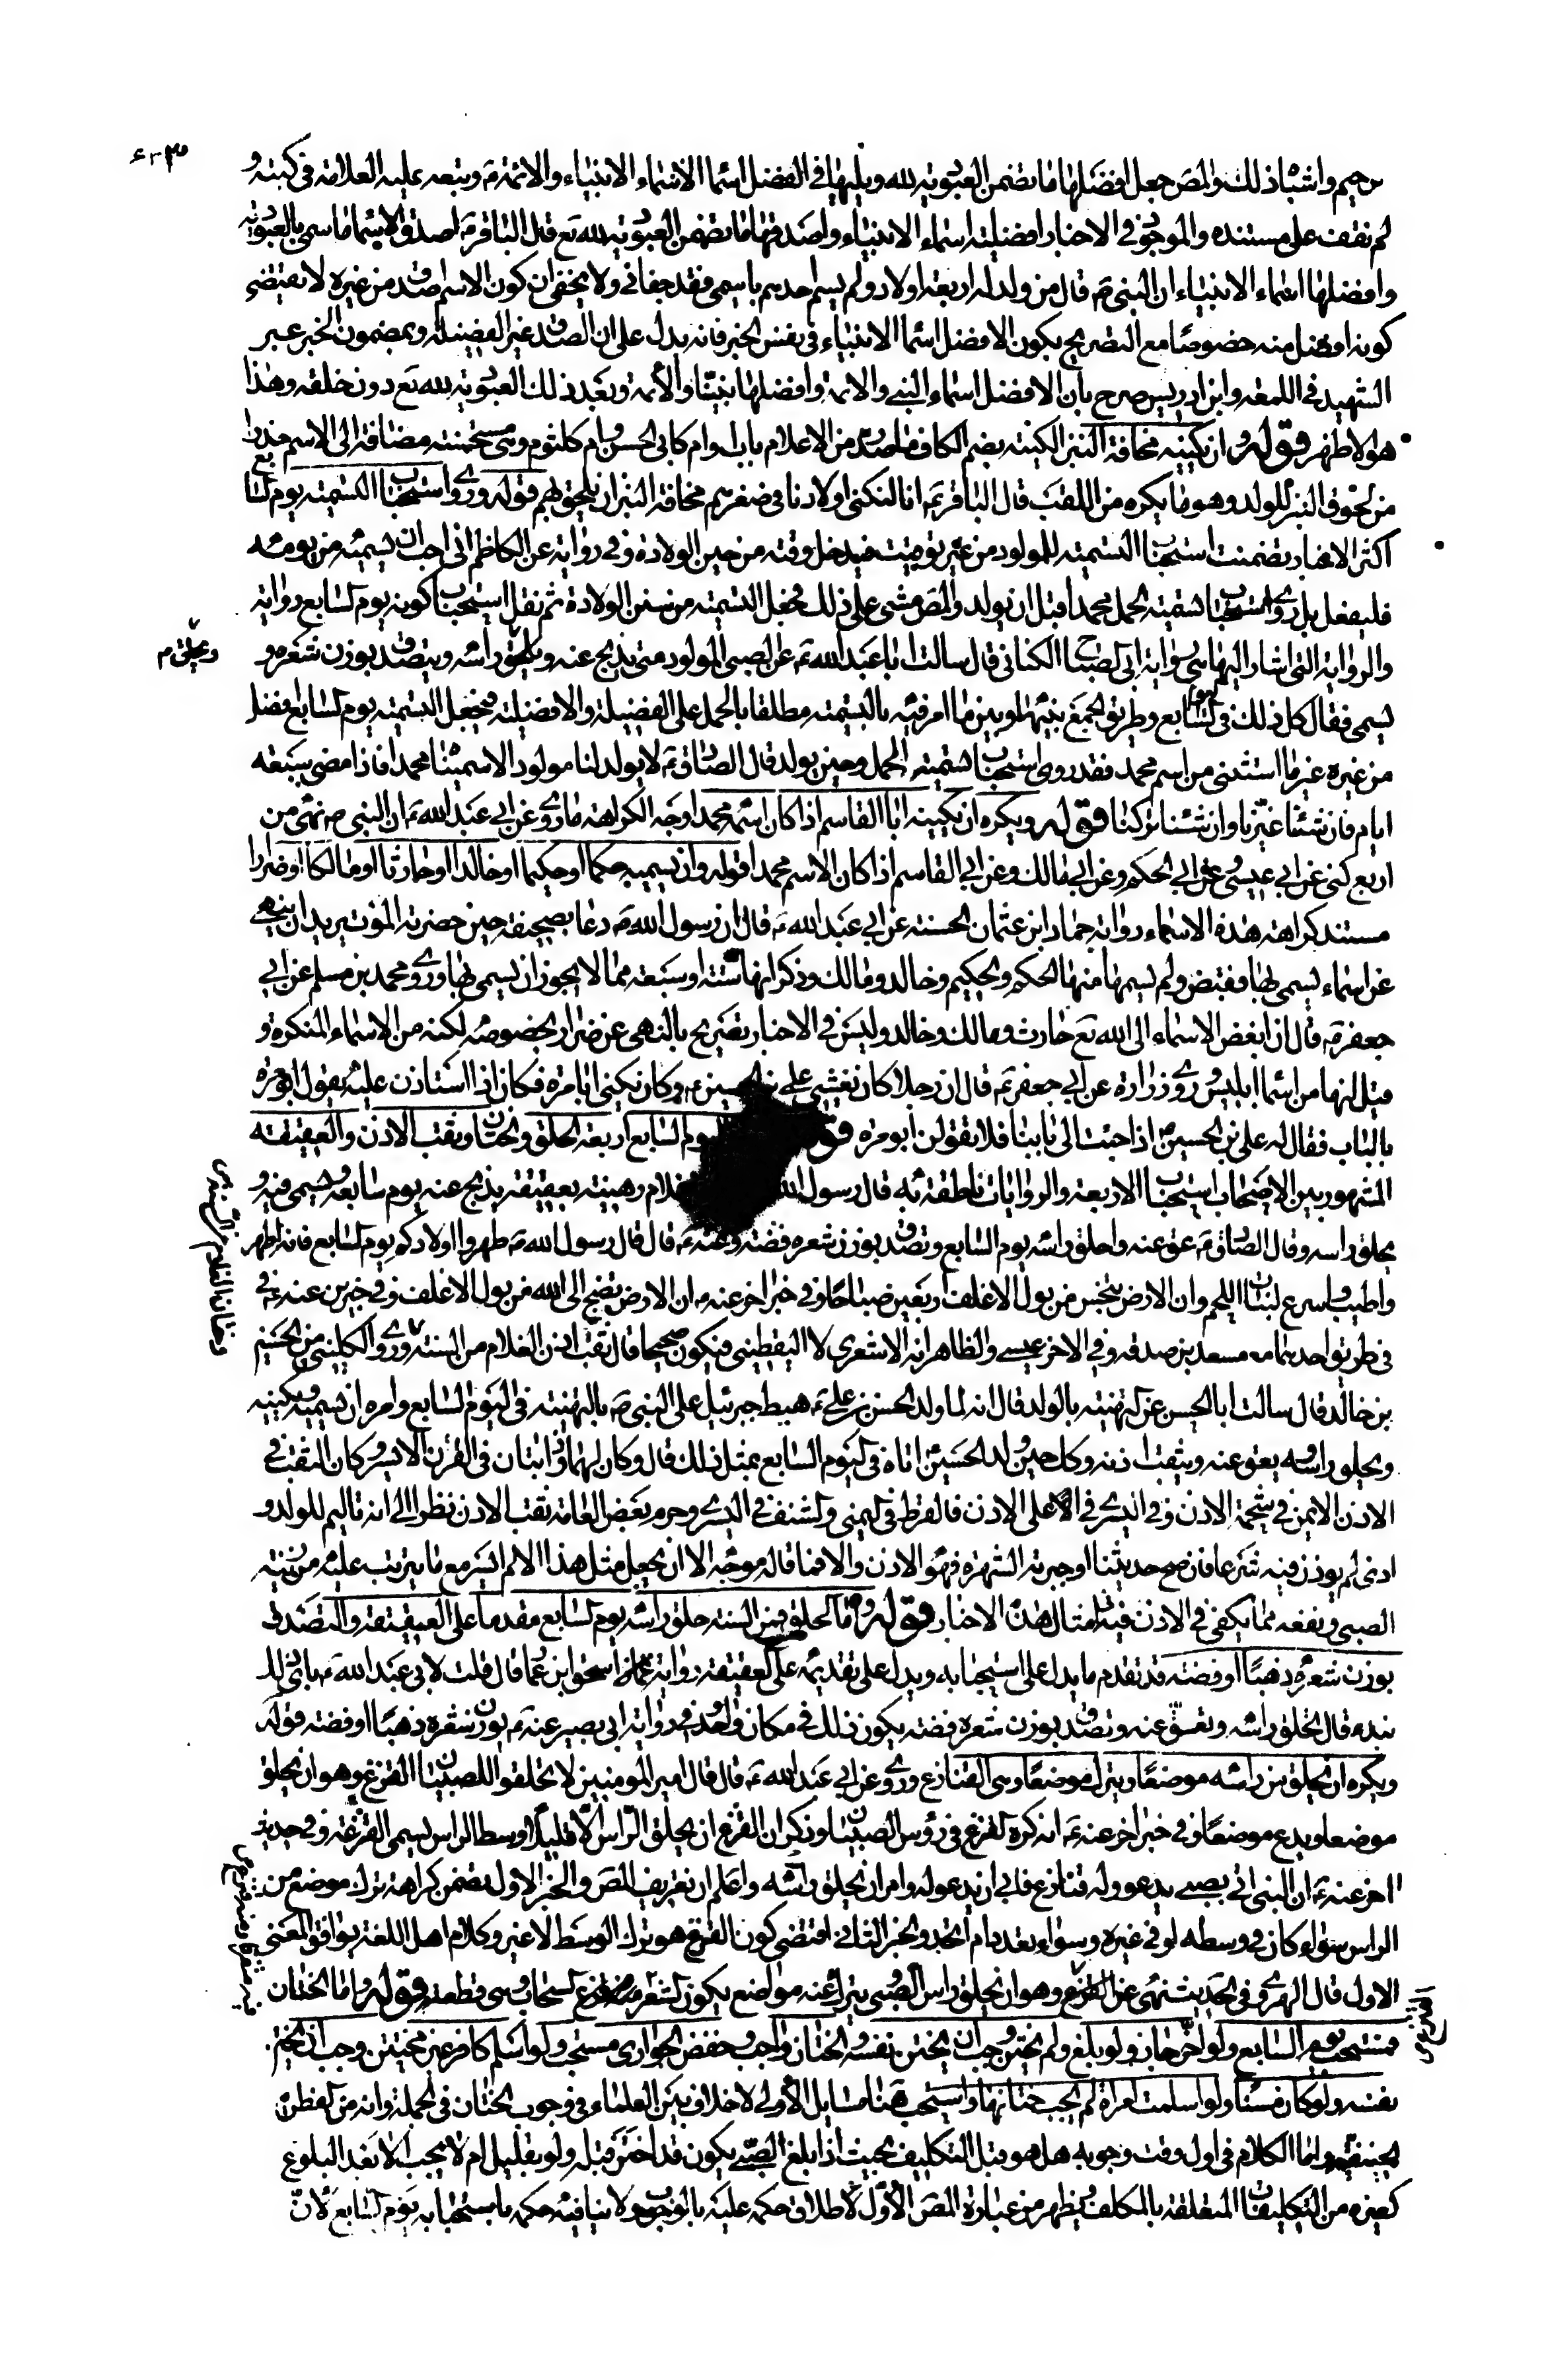 رحيم واشباه ذلك والمص جعل افضلها ما تضمن العبودية لله ويليها في الفضل اسما الاسماء الانبياء والائمة ع وتبعه عليه العلامة في كتبه و
لم نقف على مستنده والموجود في الاخبار افضلية اسماء الانبياء واصدقها ما تضمن العبودية لله تع قال الباقر ع اصدق الاسماء ما سمى بالعبودية
وافضلها اسماء الانبياء ان النبي ص قال من ولد له اربعة اولاد ولم يسم احدهم باسمي فقد جفاني ولا يخفى ان كون الاسم اصدق من غيره لا يقتضي
كونه افضل منه خصوصًا مع التصريح بكون الافضل اسما الانبياء في نفس الخبر فانه يدل على ان الصدق غير الفضيلة وبمضمون الخبر عبر
الشهيد في اللمعة وابن ادريس صرح بان الافضل اسماء النبي والائمة وافضلها نبينا والائمة وبعد ذلك العبودية لله تع دون خلقه وهذا
هو الاظهر قوله وان يكنيه مخافة النبز الكنية بضم الكاف ما صدر من الاعلام باب او ام كابي الحسن وام كلثوم وهي مستحبة مضافة الى الاسم حذرا
من لحوق النبز للولد وهو ما يكره من اللقب قال الباقر ع انا لنكني اولادنا في صغرهم مخافة النبز ان يلحق بهم قوله وروي استحباب التسمية يوم السابع
اكثر الاخبار تضمنت استحباب التسمية للمولود من غير توقيت فيدخل وقته من حين الولادة وفي رواية عن الكاظم اني احب ان يسميه من يومه
فليفعل بل روي استحباب تسمية الحمل محمدا قبل ان يولد والمص مشى على ذلك فجعل التسمية من سنن الولادة ثم نقل استحباب كونه يوم السابع رواية
والرواية التي اشار اليها هي رواية ابي الصباح الكناني قال سالت ابا عبد الله ع عن الصبي المولود متى يذبح عنه ويحلق راسه ويتصدق بوزن شعره و
يسمى فقال كل ذلك في اليوم السابع وطريق الجمع بينها وبين ما امر فيه بالتسمية مطلقا بالحمل على الفضيلة والافضلية فيجعل التسمية يوم السابع افضل
من غيره غير ما استثنى من اسم محمد فقد روى استحباب تسمية الحمل وحين يولد قال الصادق ع لا يولد لنا مولود الا سميناه محمدا فاذا مضى سبعة
ايام فان شئنا غيرنا وان شئنا تركنا قوله ويكره ان يكنيه ابا القاسم اذا كان اسمه محمدا وجه الكراهة ما روي عن ابي عبد الله ع ان النبي ص نهى عن
اربع كنى عن ابي عيسى وعن ابي الحكم وعن ابي مالك وعن ابي القاسم اذا كان الاسم محمدا قوله وان يسميه حكما او حكيما او خالدا او حارثا او مالكا او ضرارا
مستند كراهة هذه الاسماء رواية حماد ابن عثمان الحسنة عن ابي عبد الله ع قال ان رسول الله ص دعا بصحيفة حين حضرته الموت يريد ان ينهى
عن اسماء يسمى بها فقبض ولم يسمها منها الحكم والحكيم وخالد ومالك وذكر انها ستة او سبعة مما لا يجوز ان يسمى بها وروى محمد بن مسلم عن ابي
جعفر ع قال ان ابغض الاسماء الى الله تع حارث ومالك وخالد وليس في الاخبار تصريح بالنهي عن ضرار بخصوصه لكنه من الاسماء المنكرة و
قيل انها من اسما ابليس وروى زرارة عن ابي جعفر ع قال ان رجلا كان يغشى علي بن الحسين ع وكان يكنى ابا مرة فكان اذا استاذن عليه يقول ابو مرة
بالباب فقال له علي بن الحسين ع اذا جئت الى بابنا فلا تقولن ابو مرة يوم السابع اربعة الحلق والختان وثقب الاذن والعقيقة
المشهور بين الاصحاب استحباب الاربعة والروايات ناطقة به قال رسول الله غلام رهينة بعقيقة يذبح عنه يوم سابعه ويسمى فيه و
يحلق راسه وقال الصادق ع عق عنه واحلق راسه يوم السابع وتصدق بوزن شعره فضة وعنه ع قال قال رسول الله ص طهروا اولادكم يوم السابع فانه اطهر
واطيب واسرع لنبات اللحم وان الارض تنجس من بول الاغلف اربعين صباحًا وفي خبر اخر عنه ع ان الارض تضج الى الله من بول الاغلف وفي خبرين عنه ع
في طريق احدهما مسعدة بن صدقة وفي الاخر عيسى والظاهر انه الاشعري لا اليقطيني فيكون صحيحا قال ثقب اذن الغلام من السنة وروى الكليني عن الحسين
بن خالد قال سالت ابا الحسن عن التهنية بالولد قال انه لما ولد الحسن بن علي ع هبط جبرئيل على النبي ص بالتهنية في اليوم السابع وامره ان يسميه ويكنيه
ويحلق راسه ويعق عنه ويثقب اذنه وكان حين ولد الحسين اتاه في اليوم السابع بمثل ذلك قال وكان لهما ذوابتان في القرن الايسر وكان الثقب في
الاذن الايمن في شحمة الاذن وفي اليسرى في الاعلى الاذن فالقرط في اليمنى والشنف في اليسرى وحرم بعض العامة ثقب الاذن نظرا الى انه تاليم للولد و
اذى لم يوذن فيه شرعا فان صح حديثنا او جبرته الشهرة فهو الاذن والا فما قاله موجه الا ان يجعل مثل هذا الالم اليسير مع ما يترتب عليه من زينة
الصبي ونفعه مما يكفي في الاذن فيه امثال هذه الاخبار قوله واما الحلق فمن السنة حلق راسه يوم السابع مقدما على العقيقة والتصدق
بوزن شعره ذهبًا او فضة قد تقدم ما يدل على استحبابه ويدل على تقديمه على العقيقة رواية اسحق ابن عمار قال قلت لابي عبد الله ع باي ذلك
نبدء قال تحلق راسه وتعق عنه وتصدق بوزن شعره فضة يكون ذلك في مكان واحد وفي رواية ابي بصير عنه ع يوزن شعره ذهبًا او فضة قوله
ويكره ان يحلق من راسه موضعًا ويترك موضعًا وهي القنازع وروى عن ابي عبد الله ع قال قال امير المومنين لا تحلقوا للصبيان القزع وهو ان يحلق
موضعا ويدع موضعًا وفي خبر اخر عنه ع انه كره القزع في رؤس الصبيان وذكر ان القزع ان يحلق الراس الا قليلًا وسط الراس يسمى القزعة وفي حديث
اخر عنه ع ان النبي اتي بصبي يدعو له وله قنازع فابى ان يدعو له وامر ان يحلق راسه واعلم ان تعريف المص والخبر الاول تضمن كراهة ترك موضع من
الراس سواء كان في وسطه او في غيره وسواء تعدد ام اتحد والخبر الثاني اقتضى كون القزع هو ترك الوسط لا غير وكلام اهل اللغة يوافق المعنى
الاول قال الهروي في الحديث نهى عن القزع وهو ان يحلق راس الصبي ويترك عنه مواضع يكون الشعر قزع السحاب هي قطعه قوله واما الختان
فمستحب يوم السابع ولو اخر جاز ولو بلغ ولم يختن وجب ان يختن نفسه والختان واجب وخفض الجواري مستحب ولو اسلم كافر غير مختتن وجب ان يختن
نفسه ولو كان مسنا ولو اسلمت امراة لم يجب ختانها واستحب هنا مسايل الاولى لا خلاف بين العلماء في وجوب الختان في الجملة وانه من الفطرة
الحنيفية وانما الكلام في اول وقت وجوبه هل هو قبل التكليف بحيث اذا بلغ الصبي يكون قد اختتن قبله ولو بقليل ام لا يجب الا بعد البلوغ
كغيره من التكليفات المتعلقة بالمكلف ويظهر من عبارة المص الاول لاطلاق حكمه عليه بالوجوب ولا ينافيه حكمه باستحبابه يوم السابع لان